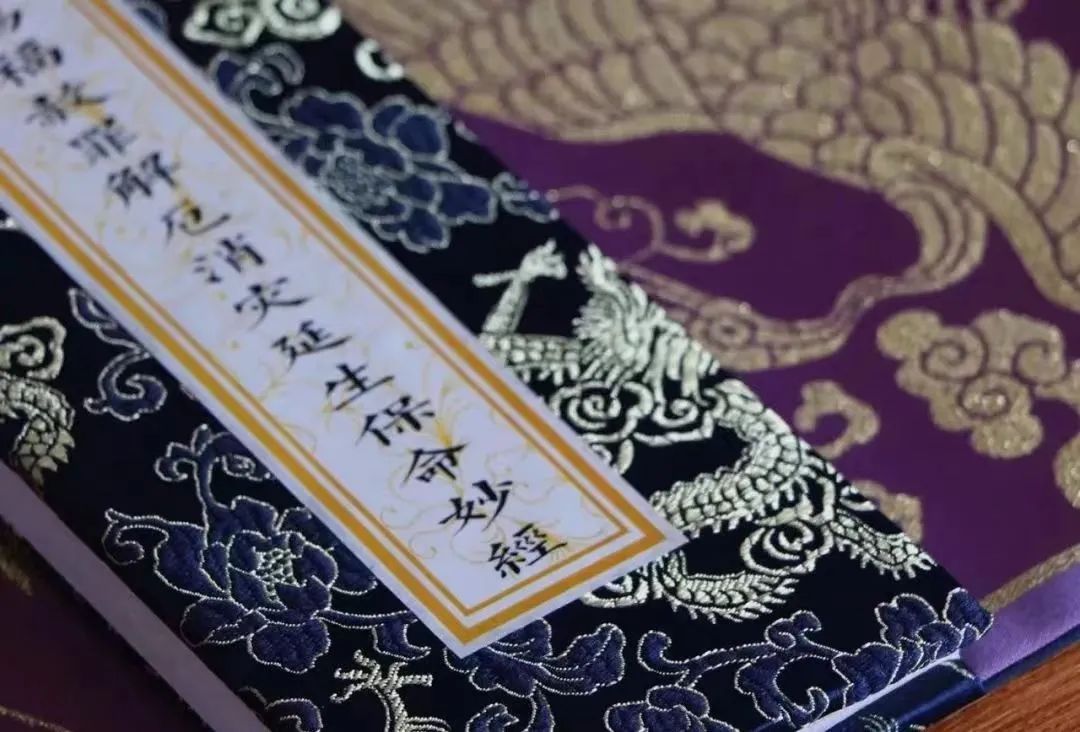 福赦罪解厄消灾延生保命妙經